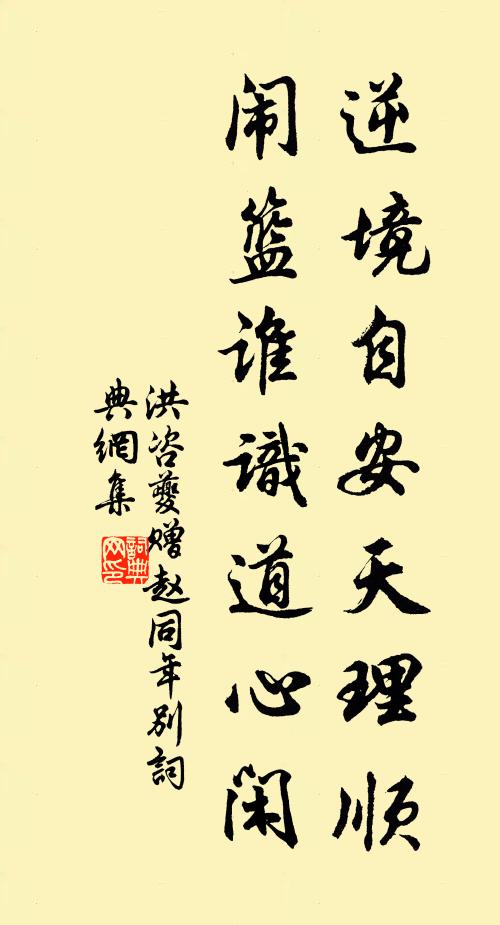 逆境自安天理顺
闹篮谁識道心闲
洪咨夔赠赵同年别詞
典網集
詞典網印